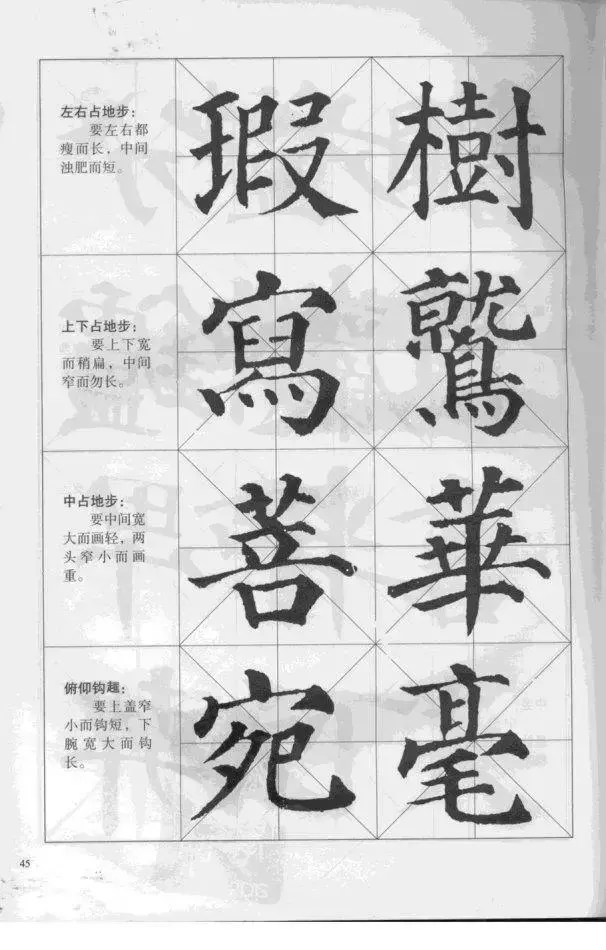 左右占地步:
要左右都
瘦而长，中间
浊肥而短。
瑕 樹
上下占地步:
要上下宽
而稍扁，中间
窄而勿长。
寫 鷲
中占地步:
要中间宽
大而画轻，两
头窄小而画
重。
菩 華
俯仰钩趯:
要上盖窄
小而钩短，下
腕宽大而钩
长。
宛 毫
45